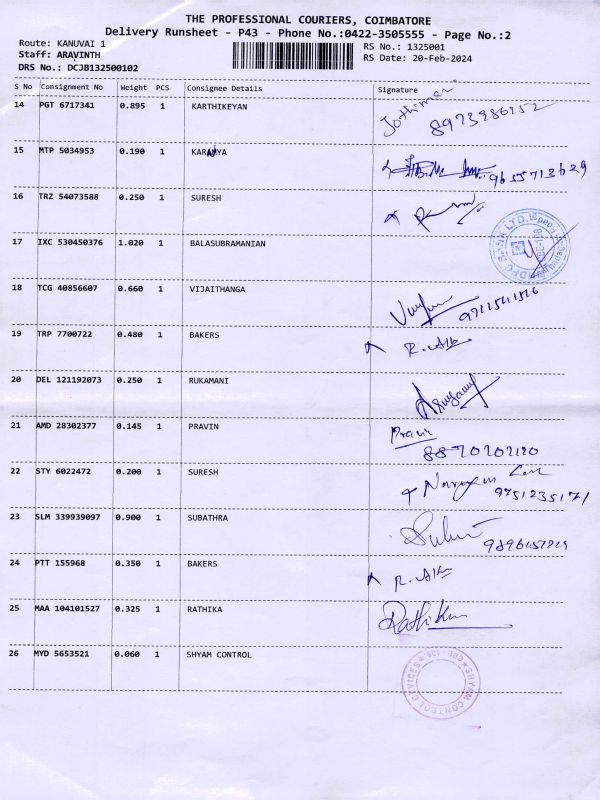 THE PROFESSIONAL COURIERS, COIMBATORE
Delivery Runsheet - P43 - Phone No.:0422-3505555 - Page No.:2
Route: KANUVAI 1
RS No.: 1325001
Staff: ARAVINTH
RS Date: 20-Feb-2024
DRS No.: DCJB132500102
S No Consignment No Weight PCS Consignee Details Signature
14 PGT 6717341 0.895 1 KARTHIKEYAN
15 MTP 5034953 0.190 1
16 TRZ 54073588 0.250 1 SURESH
17 IXC 530450376 1.020 1 BALASUBRAMANIAN
18 TCG 40856607 0.660 1 VIJAITHANGA
19 TRP 7700722 0.480 1 BAKERS
20 DEL 121192073 0.250 1 RUKAMANI
21 AMD 28302377 0.145 1 PRAVIN Pravin
22 STY 6022472 0.200 1 SURESH
9751235171
23 SLM 339939097 0.900 1 SUBATHRA
24 PTT 155968 0.350 1 BAKERS
25 MAA 104101527 0.325 1 RATHIKA Rathika
26 MYD 5653521 0.060 1 SHYAM CONTROL
SHYAM CONTROL DEVICES